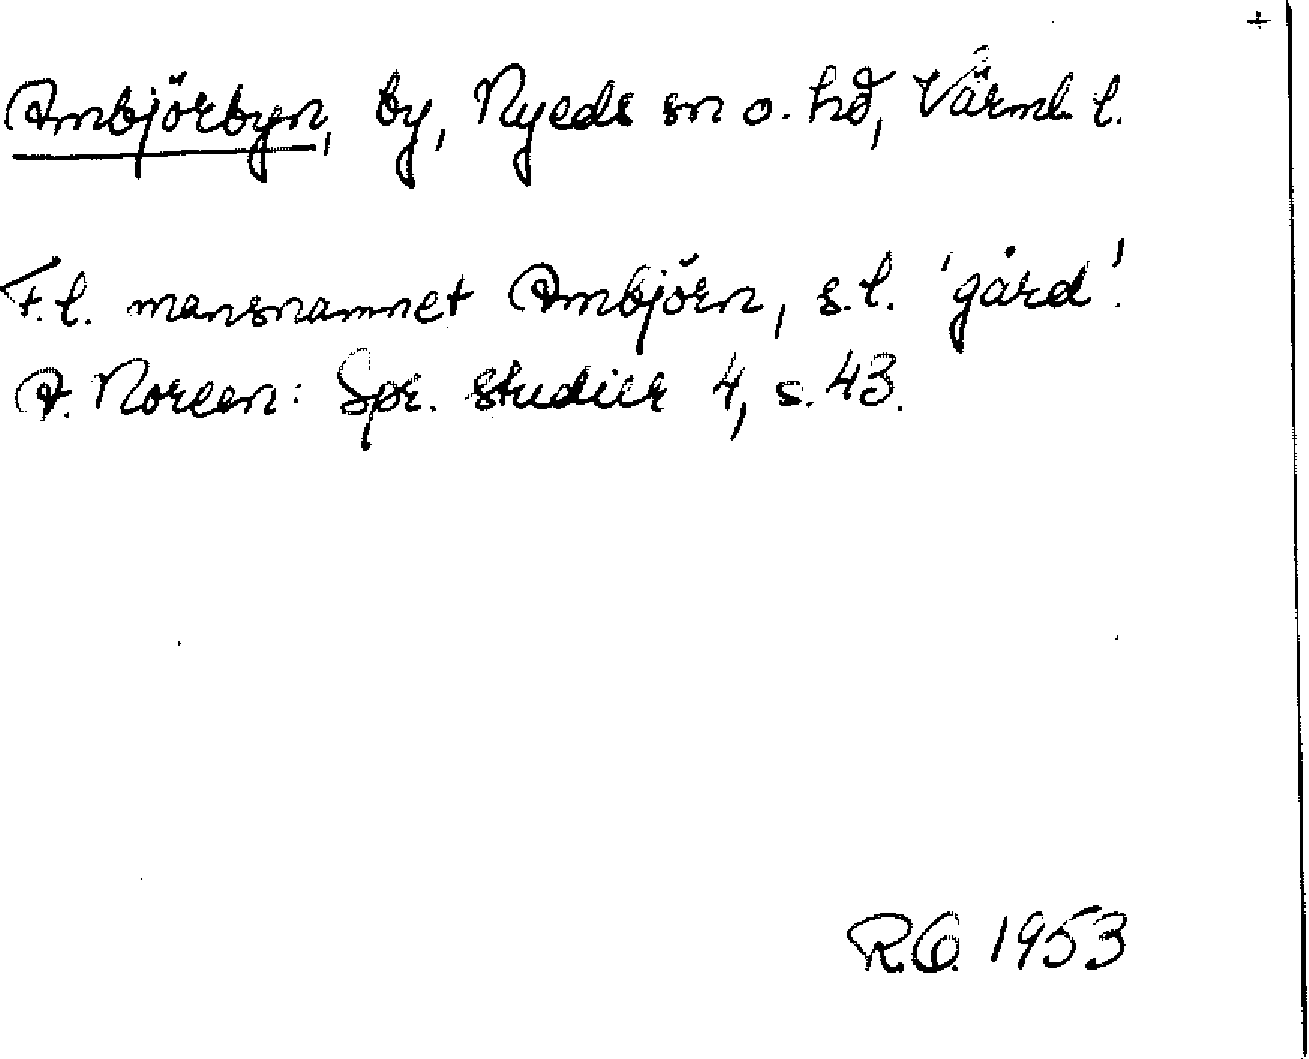 Ambjörbyn, by, Nyeds sn o. hd, Värml. l.
F.l. mansnamnet Ambjörn, s.l. 'gård'.
A. Noreen: Spr. studier 4, s. 43.
R.O. 1953